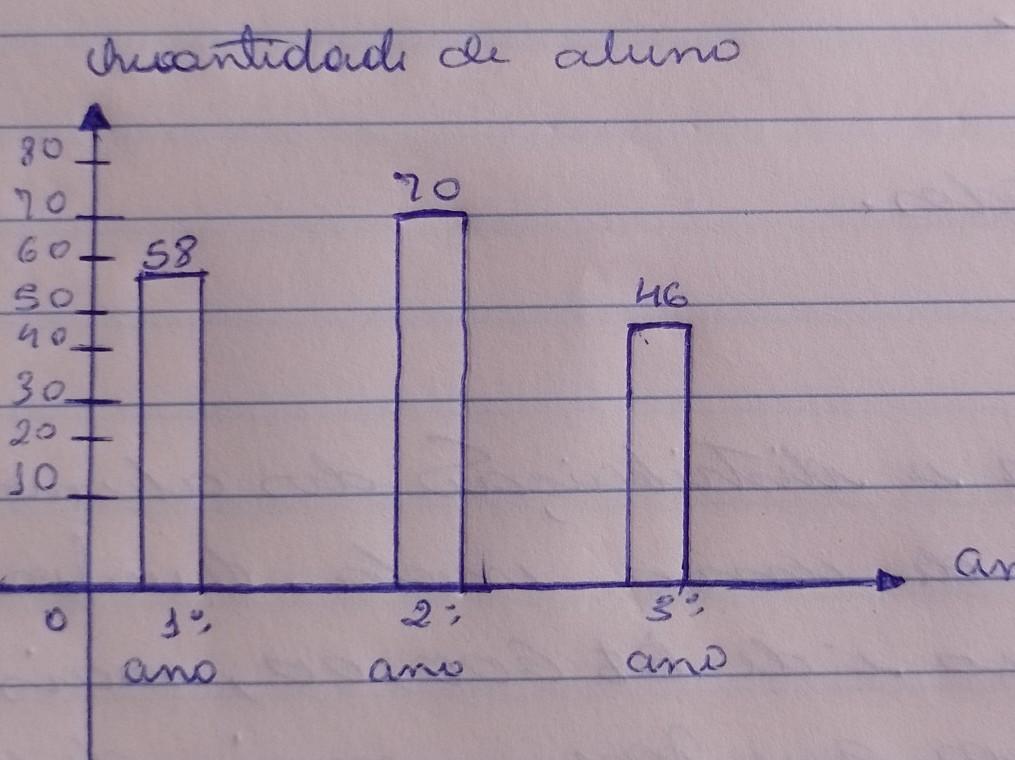 Quantidade de aluno
80
70
60
50
40
30
20
10
0
58
70
46
1º
2º
3º
ano
ano
ano